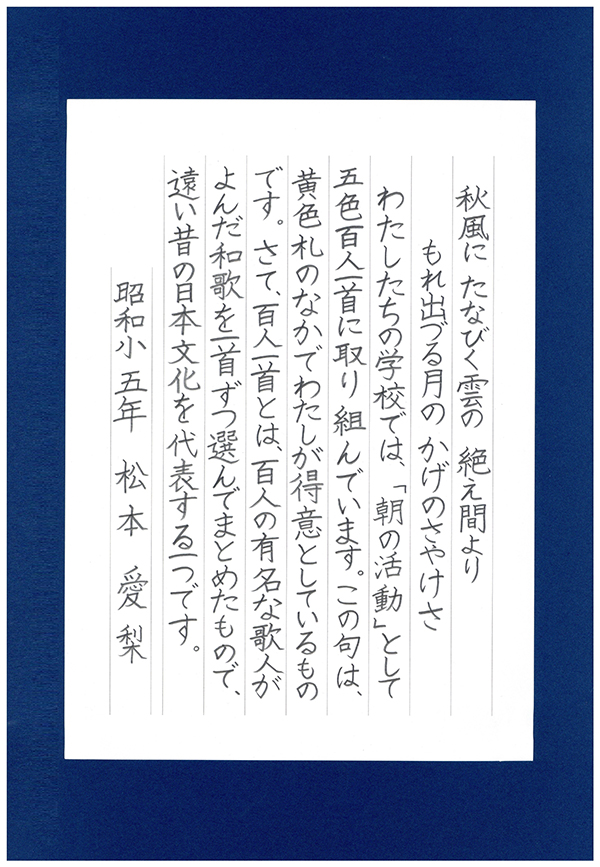 秋風に たなびく雲の 絶え間より
もれ出づる月の かげのさやけさ
わたしたちの学校では、「朝の活動」として
五色百人一首に取り組んでいます。この句は、
黄色札のなかでわたしが得意としているもの
です。さて、百人一首とは、百人の有名な歌人が
よんだ和歌を一首ずつ選んでまとめたもので、
遠い昔の日本文化を代表する一つです。
昭和小五年 松本 愛梨